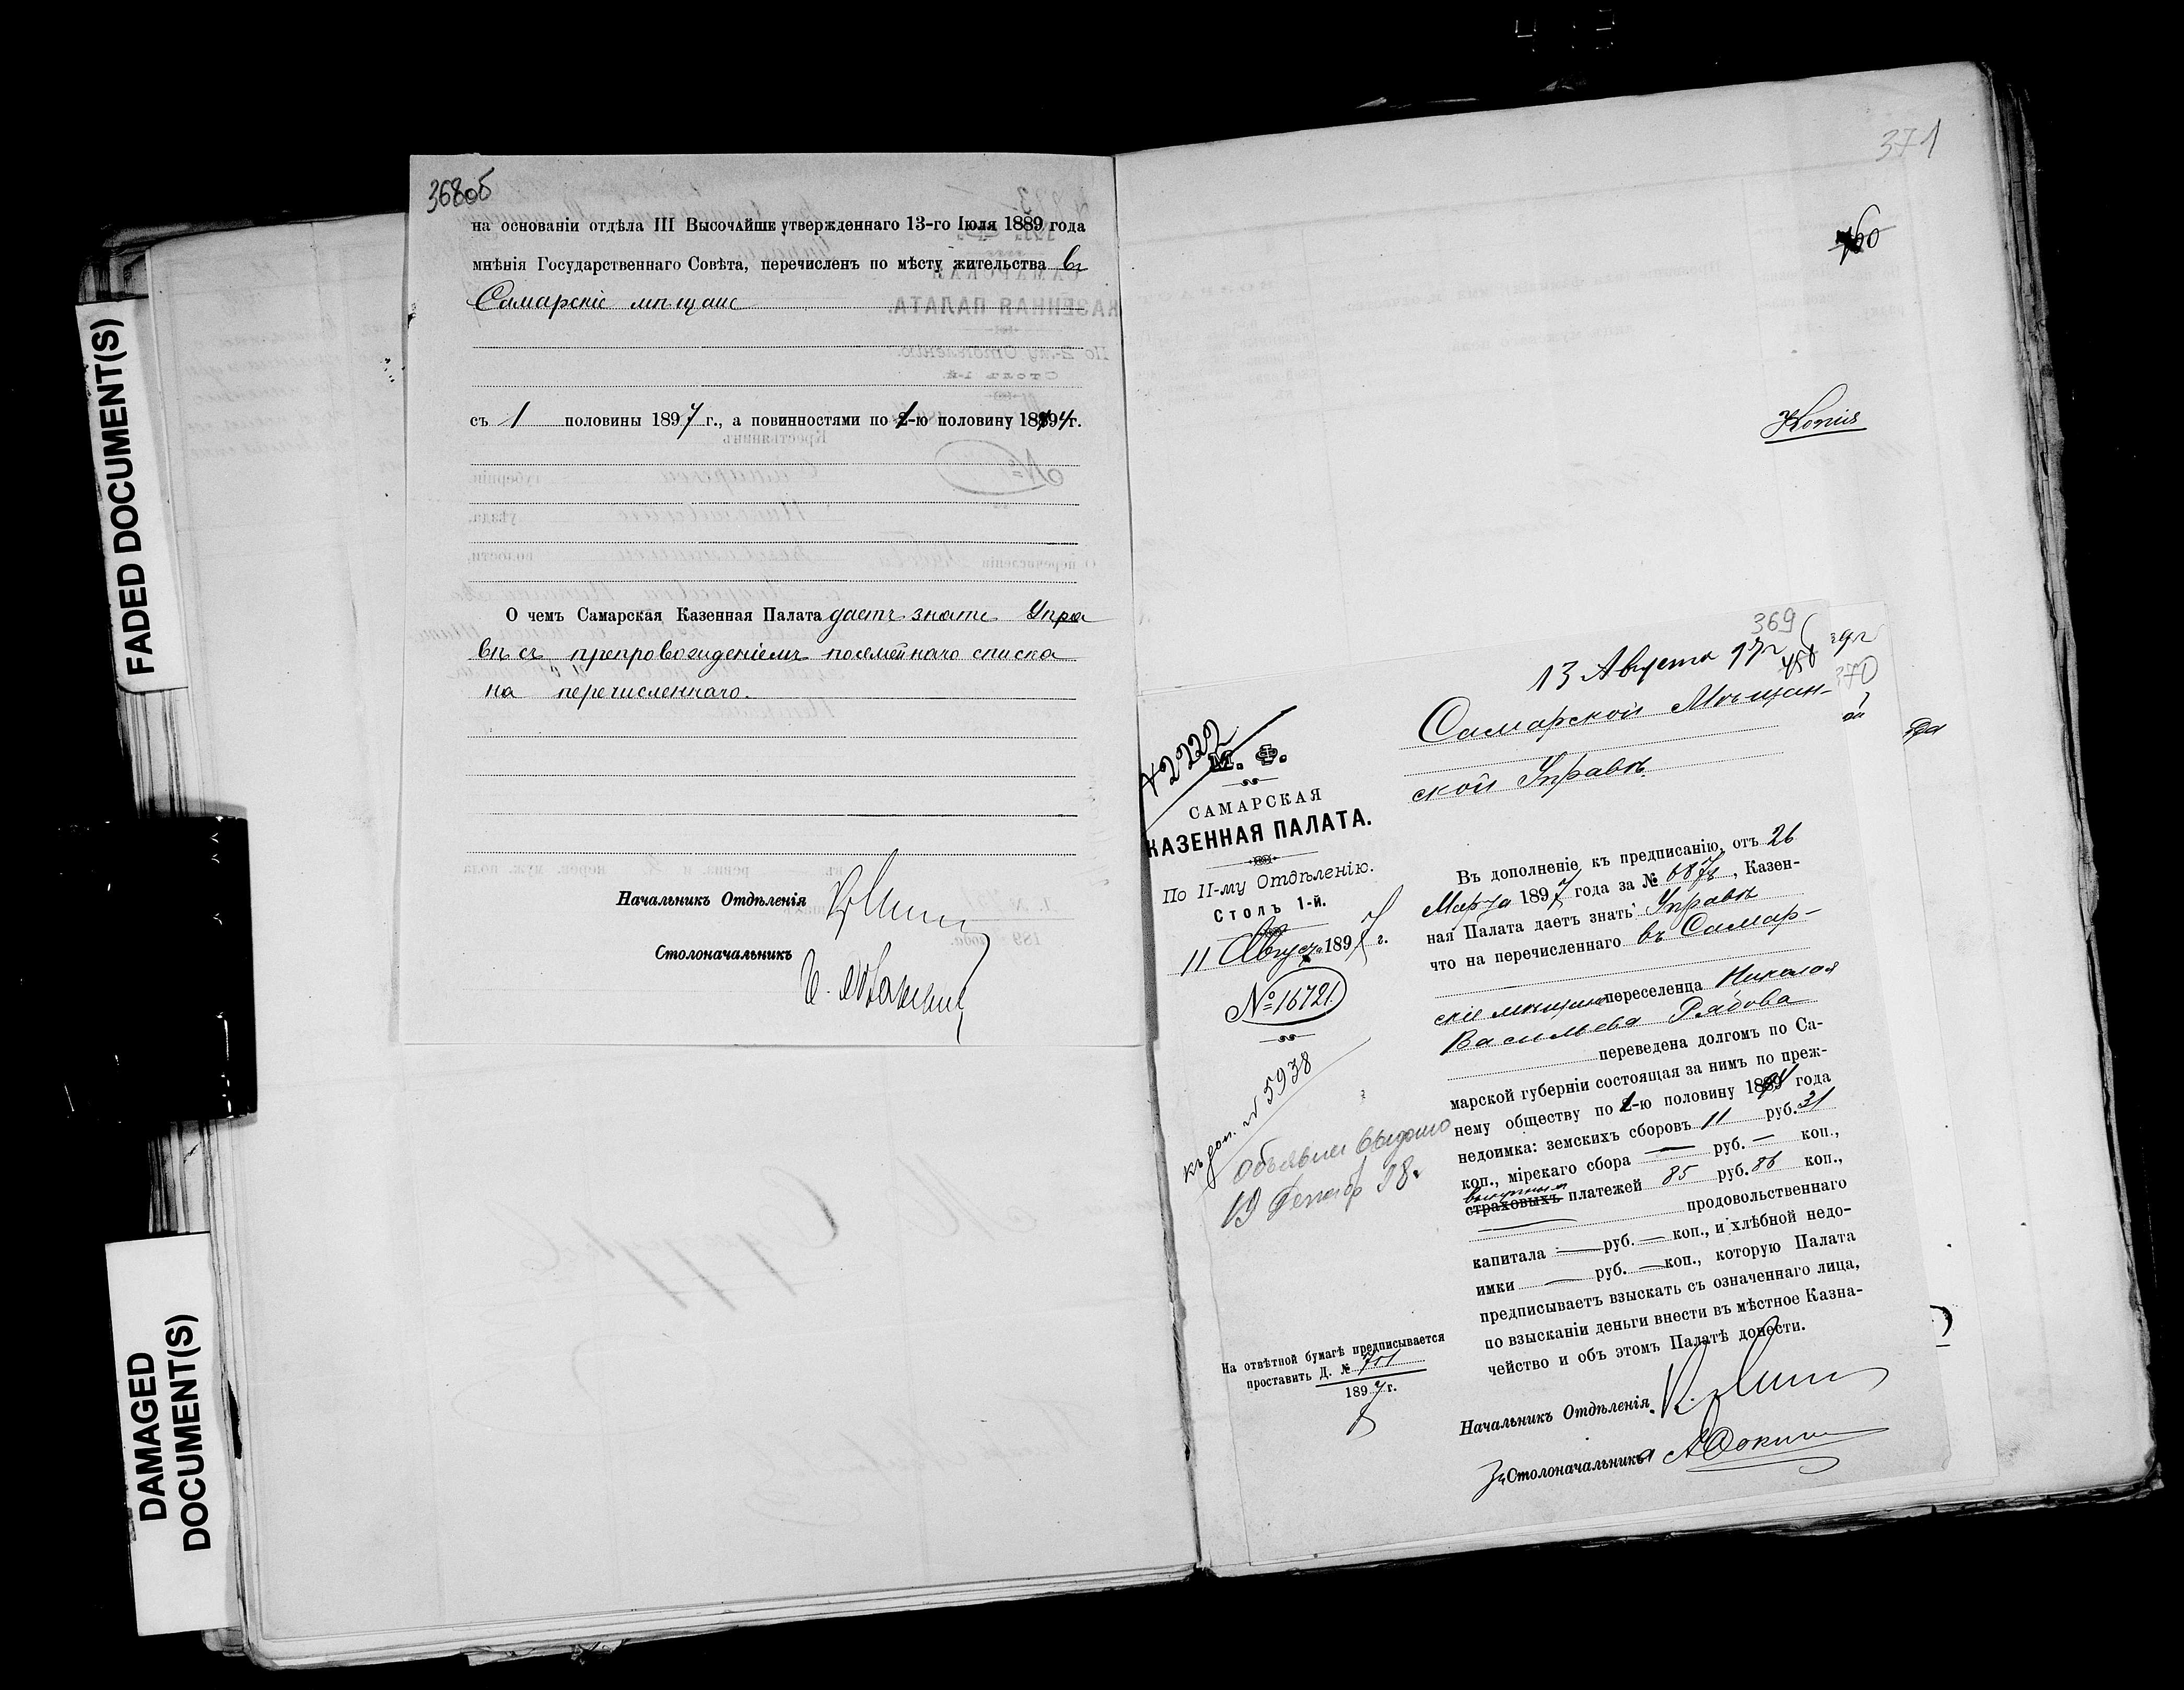 FADED DOCUMENT(S)
DAMAGED
DOCUMENT(S)
368об
на основаніи отдѣла III Высочайше утвержденнаго 13-го Іюля 1889 года
мнѣнія Государственнаго Совѣта, перечисленъ по мѣсту жительства въ
Самарскіе мѣщане
съ 1 половины 1897 г., а повинностями по 1-ю половину 1894 г.
О чемъ Самарская Казенная Палата даетъ знать Упра
вѣ съ препровожденіемъ посемейнаго списка
на перечисленнаго.
Начальникъ Отдѣленія
Столоначальникъ
371
Копія
369
370
13 Августа 97 г
458
Самарской Мѣщан-
ской Управѣ
2222
М. Ф.
САМАРСКАЯ
КАЗЕННАЯ ПАЛАТА.
По II-му Отдѣленію.
Столъ 1-й.
11 Августа 1897 г.
№ 16721.
№ 5938
19 Декабр 98 г
На отвѣтной бумагѣ предписывается
проставить Д. № 701
1897 г.
Въ дополненіе къ предписанію, отъ 26
Марта 1897 года за № 6878, Казен-
ная Палата даетъ знать Управѣ
что на перечисленнаго въ Самар-
скіе мѣщане переселенца Николая
Васильева Рябова
переведена долгомъ по Са-
марской губерніи состоящая за нимъ по преж-
нему обществу по 1-ю половину 1894 года
недоимка: земскихъ сборовъ 11 руб. 31
коп., мірскаго сбора — руб. — коп.,
выкупныхъ
страховыхъ платежей 85 руб. 86 коп.,
продовольственнаго
капитала — руб. — коп., и хлѣбной недо-
имки — руб. — коп., которую Палата
предписываетъ взыскать съ означеннаго лица,
по взысканіи деньги внести въ мѣстное Казна-
чейство и объ этомъ Палатѣ донести.
Начальникъ Отдѣленія
За Столоначальника